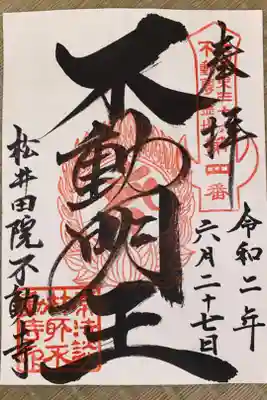 奉拝
令和二年
六月二十七日
不動明王
松井田院不動寺